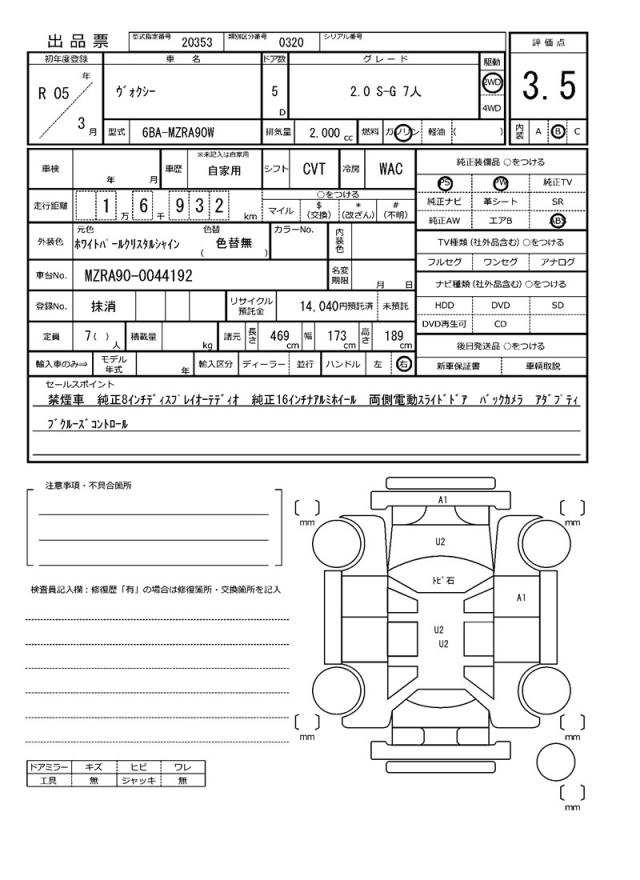 出品票 型式指定番号 20353 類別区分番号 0320 シリアル番号
初年度登録 車名 ドア数 グレード 駆動 評価点
R 05 年 3 月 ヴォクシー 5 D 2.0 S-G 7人 2WD 4WD 3.5
型式 6BA-MZRA90W 排気量 2,000 cc 燃料 ガソリン 軽油 ( ) 内装 A B C
車検 年 月 車歴 ※未記入は自家用 自家用 シフト CVT 冷房 WAC 純正装備品 ○をつける
PS PW 純正TV
走行距離 1 万 6 千 9 3 2 km ○をつける 純正ナビ 革シート SR
マイル $ (交換) * (改ざん) # (不明) 純正AW エアB ABS
外装色 元色 ホワイトパールクリスタルシャイン 色替 ( 色替無 ) カラーNo. 内装色 TV種類 (社外品含む) ○をつける
フルセグ ワンセグ アナログ
車台No. MZRA90-0044192 名変期限 月 日 ナビ種類 (社外品含む) ○をつける
登録No. 抹消 リサイクル預託金 14,040円預託済 未預託 HDD DVD SD
DVD再生可 CD
定員 7( ) 人 積載量 kg 諸元 長さ 469 cm 幅 173 cm 高さ 189 cm 後日発送品 ○をつける
輸入車のみ⇒ モデル年式 年 輸入区分 ディーラー 並行 ハンドル 左 右 新車保証書 車輌取説
セールスポイント
禁煙車 純正8インチディスプレイオーデディオ 純正16インチナアルミホイール 両側電動スライドドア バックカメラ アダプティ
ブクルーズコントロール
注意事項・不具合箇所
検査員記入欄：修復歴「有」の場合は修復箇所・交換箇所を記入
ドアミラー キズ ヒビ ワレ
工具 無 ジャッキ 無
A1
mm mm
U2
トビ石
A1
U2
U2
mm mm
mm